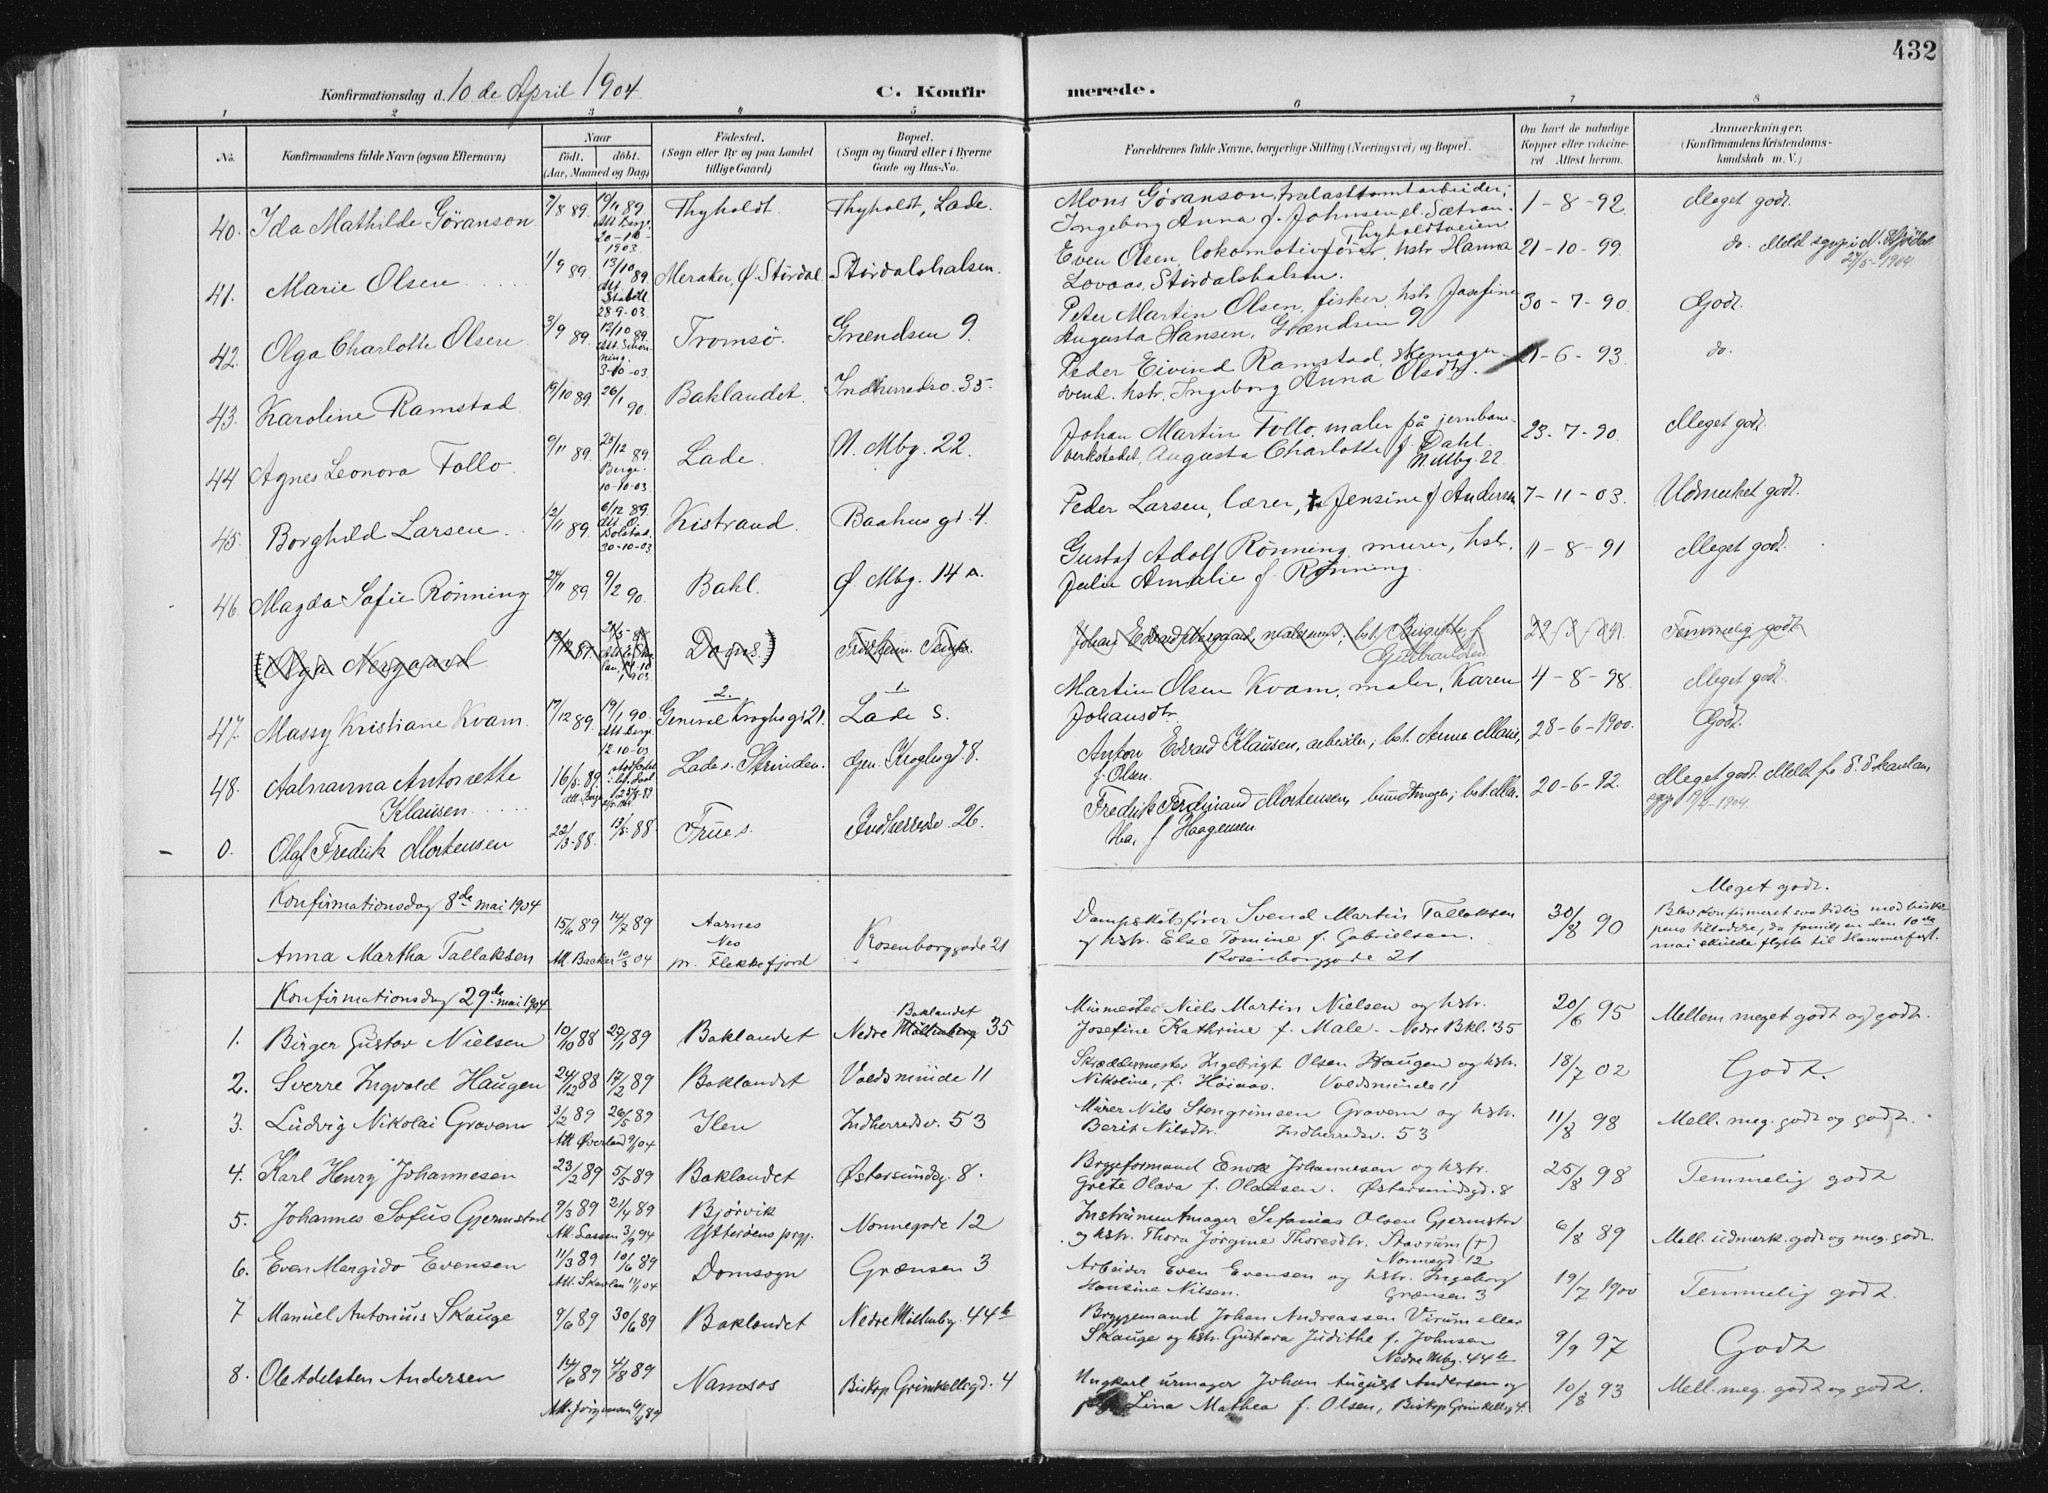 432
Konfirmationsdag d. 10 de April 1904.
C. Konfirmerede.
1 2 3 4 5 6 7 8
No.
Konfirmandens fulde Navn (ogsaa Efternavn)
Naar
født. døbt.
(Aar, Maaned og Dag)
Fødested.
(Sogn eller By og paa Landet
tillige Gaard)
Bopæl.
(Sogn og Gaard eller i Byerne
Gade og Hus-No.
Forældrenes fulde Navne, borgerlige Stilling (Næringsvei) og Bopæl.
Om havt de naturlige
Kopper eller vakcine-
ret Attest herom.
Anmærkninger.
(Konfirmandens Kristendoms-
kundskab m. V.)
40. Ida Mathilde Gøranson 7/8 89. 19/11 89. Thyholdt. Thyholdt, Lade.
Att. Berg. 20-10-1903.
Mons Gøranson, trælasttomtarbeider,
Ingeborg Anna f. Johnsen
Thyholdtveien
1-8-92. Meget godt.
41. Marie Olsen 1/9 89. 13/10 89. Meraker, Ø. Størdal. Størdalshalsen.
28-9-03.
Even Olsen, lokomotivfører, hstr. Hanna
Lovaas, Størdalshalsen.
21-10-99. do.
27/5-1904
42. Olga Charlotte Olsen 3/9 89. 13/10 89. Tromsø. Grændsen 9.
3-10-03
Peter Martin Olsen, fisker, hstr. Josefine
Augusta Hansen, Grændsen 9
30-7-90. Godt.
43. Karoline Ramstad 19/10 89. 26/1 90. Baklandet. Indherredsv. 35.
Peder Eivind Ramstad, skomager-
svend. hstr. Ingeborg Anna Olsdtr.
21-6-93. do.
44 Agnes Leonora Follo. 9/11 89. 25/12 89 Lade. N. Mbg. 22.
Berge. 10-10-03
Johan Martin Follo, maler på jernbane-
verkstedet, Augusta Charlotte f. Dahl.
N. Mbg. 22
23-7-90. Meget godt.
45. Borghild Larsen 12/11 89. 6/12 89. Kistrand. Baahus gd. 4.
30-10-03
Peder Larsen, lærer, † Jensine f. Andersen
7-11-03. Udmerket godt.
46. Magda Sofie Rønning 24/11 89 9/2 90. Bakl. Ø. Mbg. 14 a.
Gustaf Adolf Rønning, murer, hstr.
Julie Amalie f. Rønning.
11-8-91 Meget godt.
(Olga Nergaard Doms.)
Temmelig godt
47. Massy Kristiane Kvam. 17/12 89. 19/1 90 General Kroghs gd 21. Lade s.
2. 1
Att. Berge 12-10-03
Martin Olsen Kvam, maler, Karen
Johansdtr.
4-8-98. Meget godt.
48. Aalmanna Antonette
Klausen 16/5-89. Lade s. Strinden. Gen. Kroghsgd. 8.
Anton Edvard Klausen, arbeider, hst. Anna Marie,
f. Olsen.
28-6-1900. Godt.
0. Olaf Fredrik Mortensen 22/3-88. 13/5-88 Frue s. Indherredsv. 26.
Fredrik Ferdinand Mortensen, bundtmager; hst. Mar-
tha, f. Haagensen
20-6-92. Meget godt.
Konfirmationsdag 8de mai 1904
Anna Martha Tallaksen 15/6 89 14/7 89 Aarnes
Nes
pr. Flekkefjord Rosenborggade 21
Att. Backer 10/3 04
Dampskibsfører Svend Martin Tallaksen
og hstr. Else Tomine f. Gabrielsen.
Rosenborggade 21
30/8 90 Meget godt.
Blev konfirmeret saa tidlig med biske-
pens tilladelse, da familjen den 10de
mai skulde flytte til Hammerfest.
Konfirmationsdag 29de mai 1904
1. Birger Gustav Nielsen 10/10 88 27/1 89 Baklandet Nedre Møllenberg Baklandet 35
Murmester Niels Martin Nielsen og hstr.
Josefine Kathrine f. Male. Nedre Bkl. 35
20/6 95 Mellem meget godt og godt.
2. Sverre Ingvald Haugen 24/12 88 17/2 89 Baklandet Voldsminde 11
Skræddermester Ingebrigt Olsen Haugen og hstr.
Nikoline, f. Høiaas. Voldsminde 11
18/7 02 Godt.
3. Ludvig Nikolai Gravem 3/2 89 26/5 89 Ilen Indherredsv. 53
Att. Øverland 9/1 04
Murer Nils Stengrimsen Gravem og hstr.
Berit Nilsdtr. Indherredsv. 53
11/8 98 Mell. meg. godt og godt.
4. Karl Henry Johannesen 23/2 89 5/5 89 Baklandet Østersundsg. 8.
Bryggeformand Enok Johannesen og hstr.
Grete Olava f. Olaussen. Østersundsgd. 8
25/8 98 Temmelig godt
5. Johannes Sofus Gjermstad 9/3 89 21/4 89 Bjørvik
Ytterøens prgj. Nonnegade 12
Att. Lassen 3/9 94
Instrumentmager Sefanias Olsen Gjermstad
og hstr. Thora Jørgine Thoresdtr. Stavrum (†)
Nonnegd. 12
6/8 89 Mell. udmerk. godt og meg. godt.
6. Even Margido Evensen 11/3 89 10/6 89 Domsogn Grænsen 3
Att. Skavlan 11/1 04
Arbeider Even Evensen og hstr. Ingeborg
Hansine Nilsen. Grænsen 3
19/7 1900 Temmelig godt.
7 Manuel Antonius Skauge 9/6 89 30/6 89 Baklandet Nedre Møllenbg. 44 b
Bryggemand Johan Andreassen Virum eller
Skauge og hstr. Gustava Judithe f. Johnsen
Nedre Mbg. 44 b
9/9 97 Godt
8. Ole Adelsten Andersen 14/6 89 4/8 89 Namsos Biskop Grimkellsgd. 4
Ungkarl urmager Johan August Andersen og
Lina Mathea f. Olsen, Biskop Grimkellsg. 4.
10/8 93 Mell. meg. godt og godt.